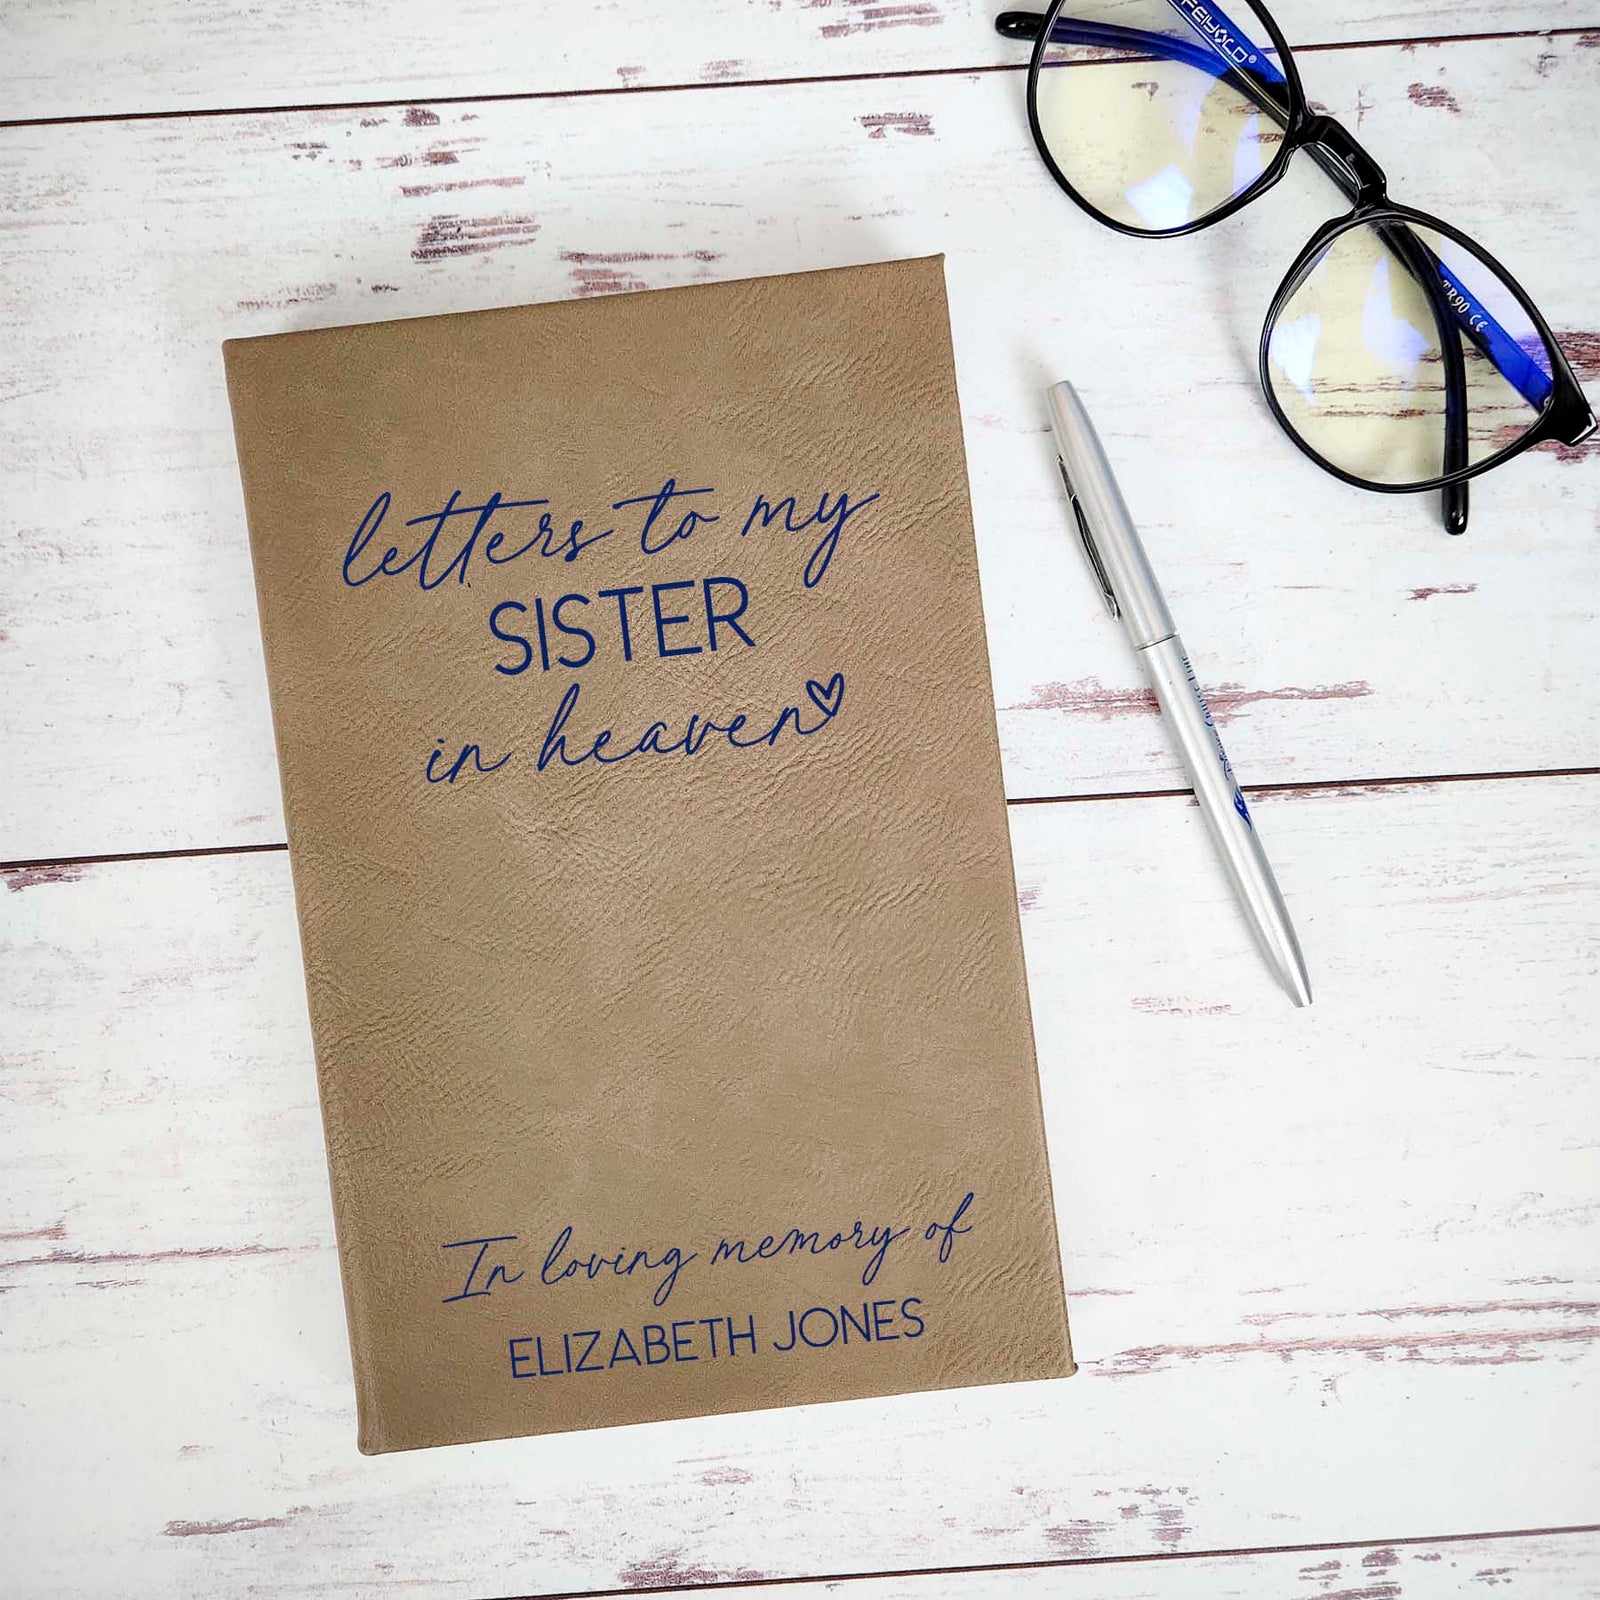 FEIYOLD®
TR90 CE
letters to my
SISTER
in heaven
In loving memory of
ELIZABETH JONES